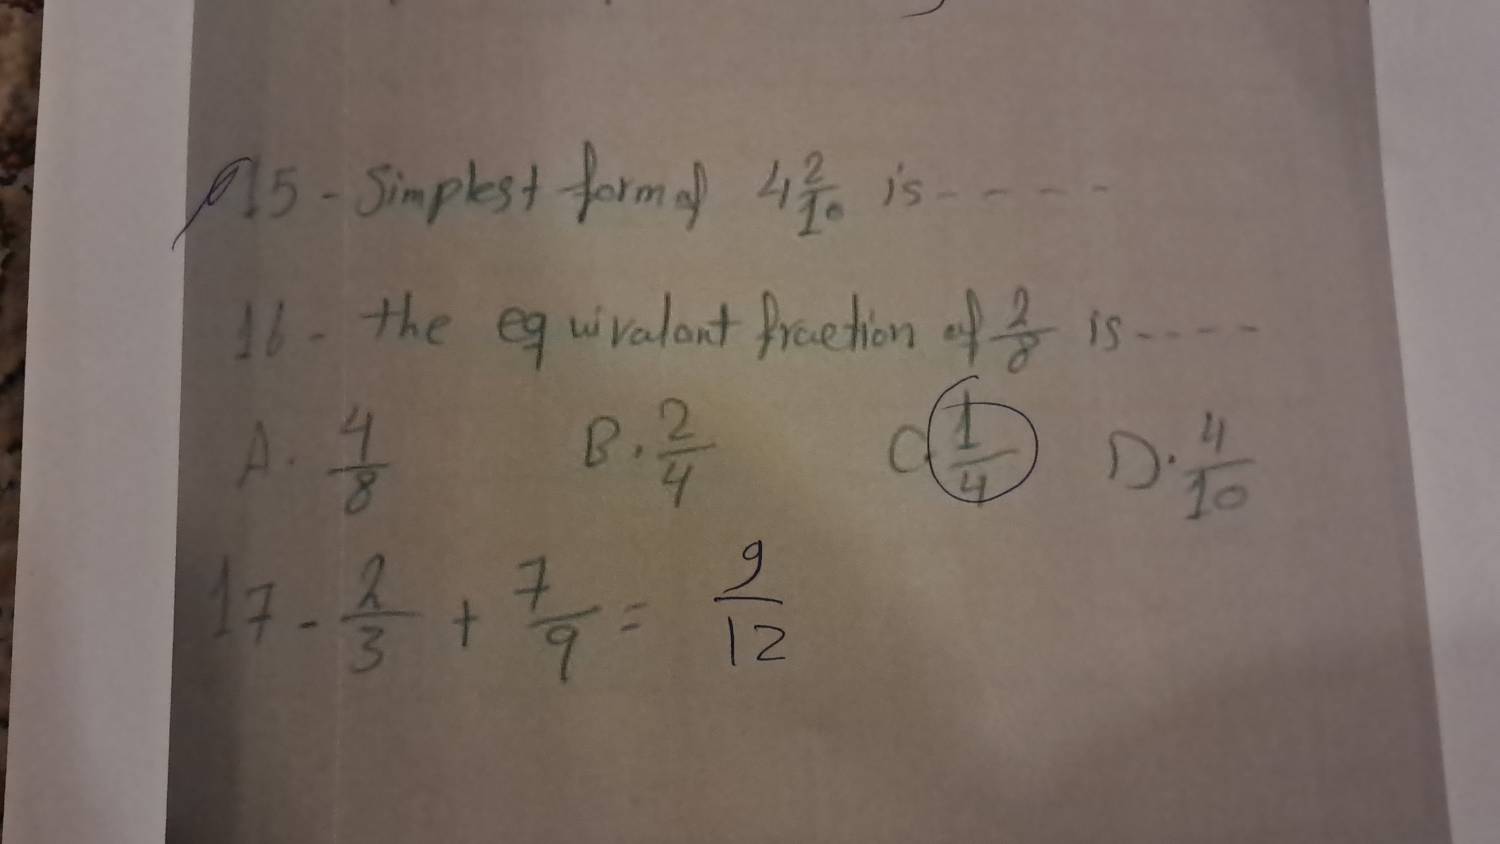 15 - Simplest form of 4 2/10 is - - - -
16 - the equivalant fraction of 2/8 is - - - -
A. 4/8 B. 2/4 C. 1/4 D. 4/10
17 - 2/3 + 7/9 = 9/12